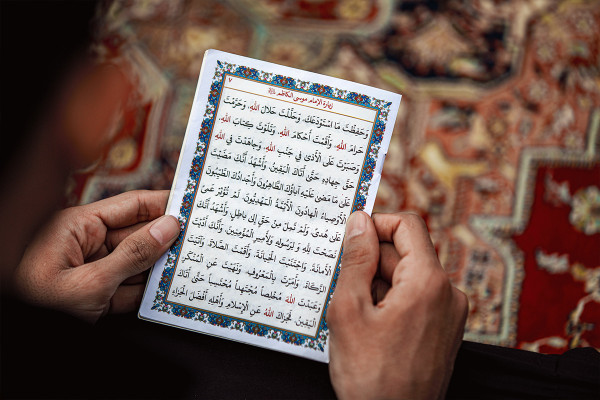 ٧
زيارة الإمام موسى الكاظم
وَحَفِظْتَ مَا اسْتَوْدَعَكَ، وَحَلَّلْتَ حَلَالَ اللهِ، وَحَرَّمْتَ
حَرَامَ اللهِ، وَأَقَمْتَ أَحْكَامَ اللهِ، وَتَلَوْتَ كِتَابَ اللهِ،
وَصَبَرْتَ عَلَى الْأَذَى فِي جَنْبِ اللهِ، وَجَاهَدْتَ فِي اللهِ
حَقَّ جِهَادِهِ حَتَّى أَتَاكَ الْيَقِينُ، وَأَشْهَدُ أَنَّكَ مَضَيْتَ
عَلَى مَا مَضَى عَلَيْهِ آبَاؤُكَ الطَّاهِرُونَ، وَأَجْدَادُكَ الطَّيِّبُونَ
الْأَوْصِيَاءُ الْهَادُونَ، الْأَئِمَّةُ الْمَهْدِيُّونَ، لَمْ تُؤْثِرْ عَمًى
عَلَى هُدًى، وَلَمْ تَمِلْ مِنْ حَقٍّ إِلَى بَاطِلٍ، وَأَشْهَدُ أَنَّكَ
نَصَحْتَ لِلَّهِ وَلِرَسُولِهِ وَلِأَمِيرِ الْمُؤْمِنِينَ، وَأَنَّكَ أَدَّيْتَ
الْأَمَانَةَ، وَاجْتَنَبْتَ الْخِيَانَةَ، وَأَقَمْتَ الصَّلَاةَ، وَآتَيْتَ
الزَّكَاةَ، وَأَمَرْتَ بِالْمَعْرُوفِ، وَنَهَيْتَ عَنِ الْمُنْكَرِ،
وَعَبَدْتَ اللهَ مُخْلِصاً مُجْتَهِداً مُحْتَسِباً حَتَّى أَتَاكَ
الْيَقِينُ، فَجَزَاكَ اللهُ عَنِ الْإِسْلَامِ وَأَهْلِهِ أَفْضَلَ الْجَزَاءِ